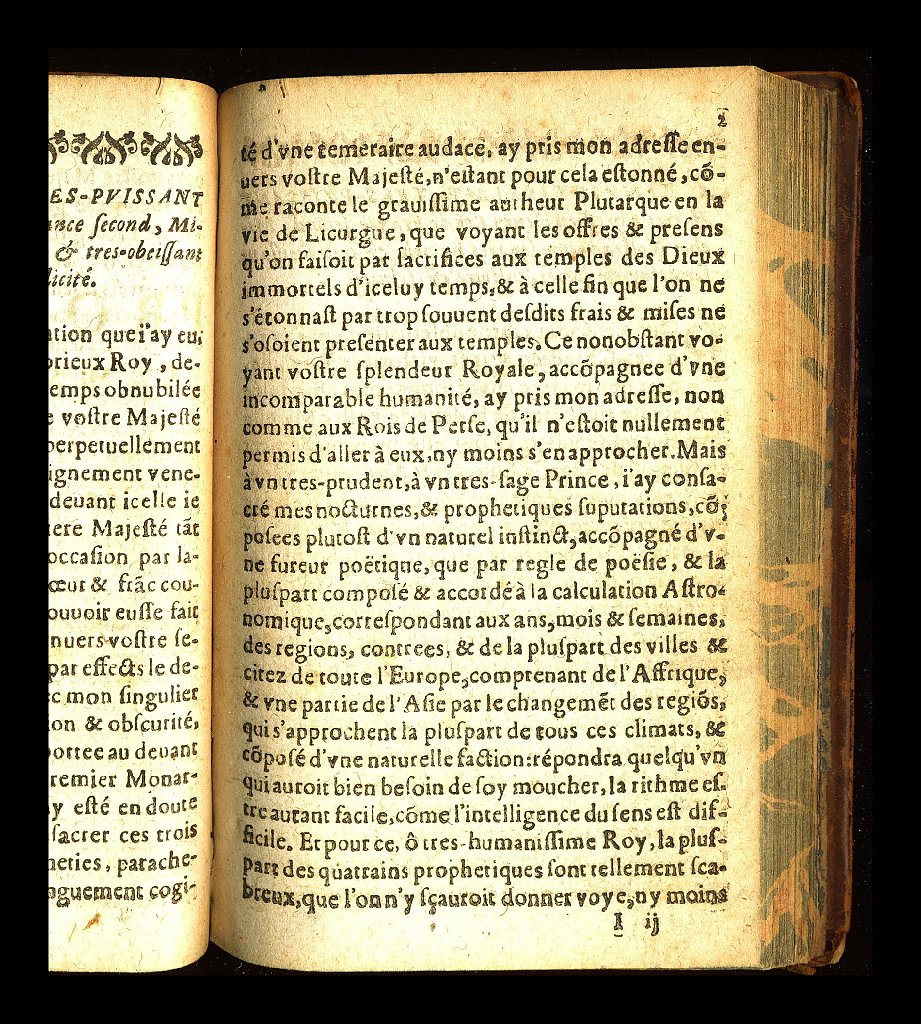 ES-PVISSANT
ance ſecond, Mi-
& tres-obeiſſant
licité.
ation que i'ay eu,
orieux Roy, de-
emps obnubilée
e voſtre Majeſté
perpetuellement
ignement vene-
deuant icelle ie
iere Majeſté tãt
occaſion par la-
cœur & frãc cou-
ouuoir euſſe fait
nuers voſtre ſe-
par effects le de-
c mon ſingulier
ion & obſcurité,
portee au deuant
remier Monar-
y eſté en doute
ſacrer ces trois
heties, parache-
nguement cogi-
2
té d'vne temeraire audace, ay pris mon adreſſe en-
uers voſtre Majeſté, n'eſtant pour cela eſtonné, cõ-
me raconte le grauiſſime autheur Plutarque en la
vie de Licurgue, que voyant les offres & preſens
qu'on faiſoit par ſacrifices aux temples des Dieux
immortels d'iceluy temps, & à celle fin que l'on ne
s'étonnaſt par trop ſouuent deſdits frais & miſes ne
s'oſoient preſenter aux temples. Ce nonobſtant vo-
yant voſtre ſplendeur Royale, accõpagnee d'vne
incomparable humanité, ay pris mon adreſſe, non
comme aux Rois de Perſe, qu'il n'eſtoit nullement
permis d'aller à eux, ny moins s'en approcher. Mais
à vn tres-prudent, à vn tres-ſage Prince, i'ay conſa-
cré mes nocturnes, & prophetiques ſuputations, cõ-
poſees plutoſt d'vn naturel inſtinct, accõpagné d'v-
ne fureur poëtique, que par regle de poëſie, & la
pluſpart compoſé & accordé à la calculation Aſtro-
nomique, correſpondant aux ans, mois & ſemaines,
des regions, contrees, & de la pluſpart des villes &
citez de toute l'Europe, comprenant de l'Affrique,
& vne partie de l'Aſie par le changemẽt des regiõs,
qui s'approchent la pluſpart de tous ces climats, &
cõpoſé d'vne naturelle faction: répondra quelqu'vn
qui auroit bien beſoin de ſoy moucher, la rithme eſ-
tre autant facile, cõme l'intelligence du ſens eſt dif-
ficile. Et pour ce, ô tres-humaniſſime Roy, la pluſ-
part des quatrains prophetiques ſont tellement ſca-
breux, que l'on n'y ſçauroit donner voye, ny moins
I ij